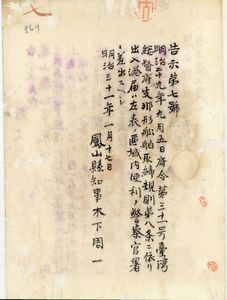 告示第七號
明治二十九年九月五日府令第三十一号臺湾
総督府支那形船舶取締規則第八条ニ依リ
出入港届ハ左表ノ區域内便利ノ警察官署
ヘ差出スヘシ
明治三十一年一月十七日
鳳山縣知事木下周一